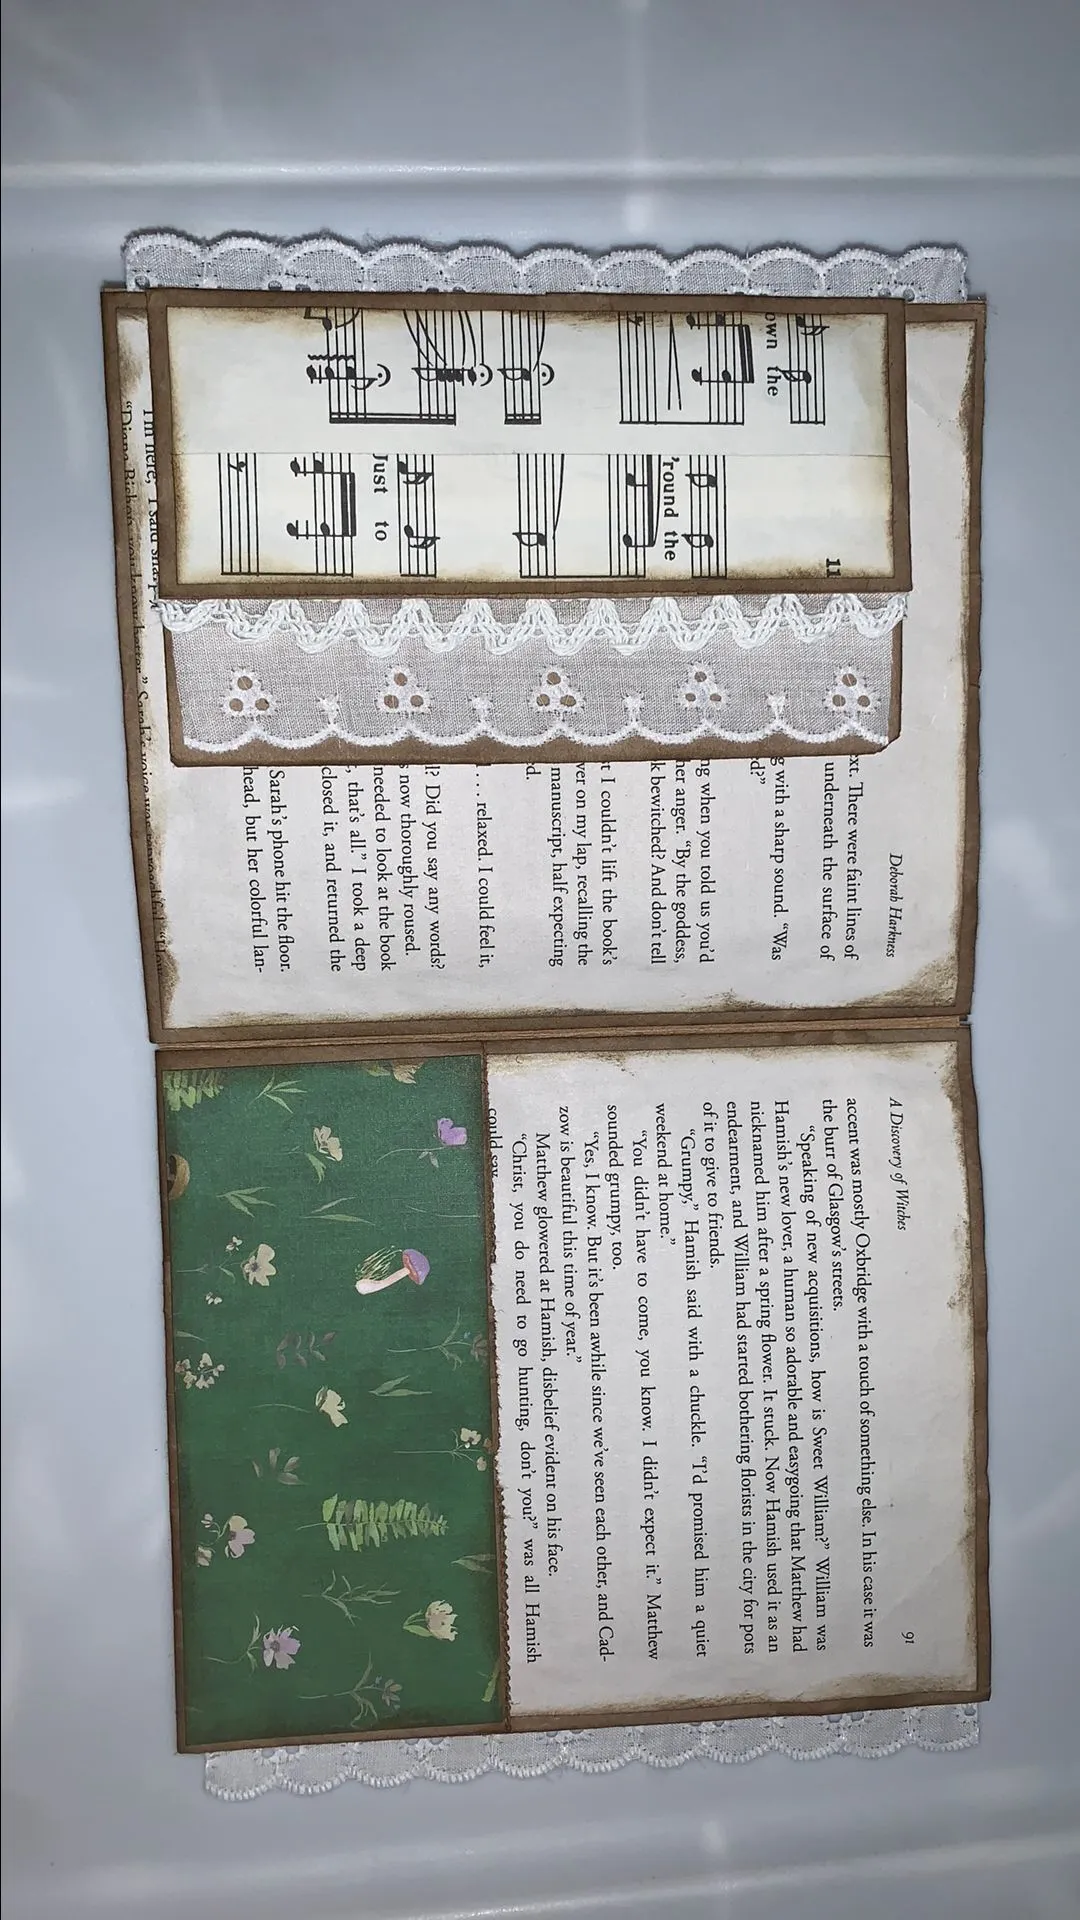 Deborah Harkness
ext. There were faint lines of
underneath the surface of
g with a sharp sound. "Was
d?"
ng when you told us you'd
her anger. "By the goddess,
k bewitched? And don't tell
t I couldn't lift the book's
ver on my lap, recalling the
manuscript, half expecting
d.
. . . relaxed. I could feel it,
l? Did you say any words?
s now thoroughly roused.
needed to look at the book
, that's all." I took a deep
closed it, and returned the
Sarah's phone hit the floor.
head, but her colorful lan-
I'm here," I said
"Diana Bishop, you know better." Sarah's voice was reproachful. "How
own the
11
'round the
Just to
A Discovery of Witches
91
accent was mostly Oxbridge with a touch of something else. In his case it was
the burr of Glasgow's streets.
"Speaking of new acquisitions, how is Sweet William?" William was
Hamish's new lover, a human so adorable and easygoing that Matthew had
nicknamed him after a spring flower. It stuck. Now Hamish used it as an
endearment, and William had started bothering florists in the city for pots
of it to give to friends.
"Grumpy," Hamish said with a chuckle. "I'd promised him a quiet
weekend at home."
"You didn't have to come, you know. I didn't expect it." Matthew
sounded grumpy, too.
"Yes, I know. But it's been awhile since we've seen each other, and Cad-
zow is beautiful this time of year."
Matthew glowered at Hamish, disbelief evident on his face.
"Christ, you do need to go hunting, don't you?" was all Hamish
could say